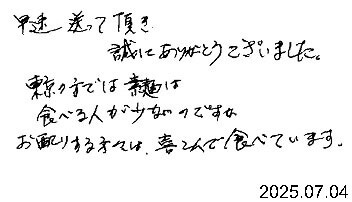 早速送って頂き
誠にありがとうございました。
東京の方では素麺は
食べる人が少ないのですが
お配りする方々は、喜こんで食べています。
2025.07.04